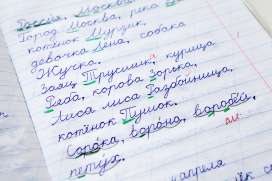 Россия, Москва
Город Москва, река
котёнок Мурзик
девочка Лена, собака
Жучка.
Заяц Трусишка, курица
Ряба, корова Зорька,
Лиса лиса Разбойница,
котёнок Пушок.
Сорока, ворона, воробей,
петух.
апреля